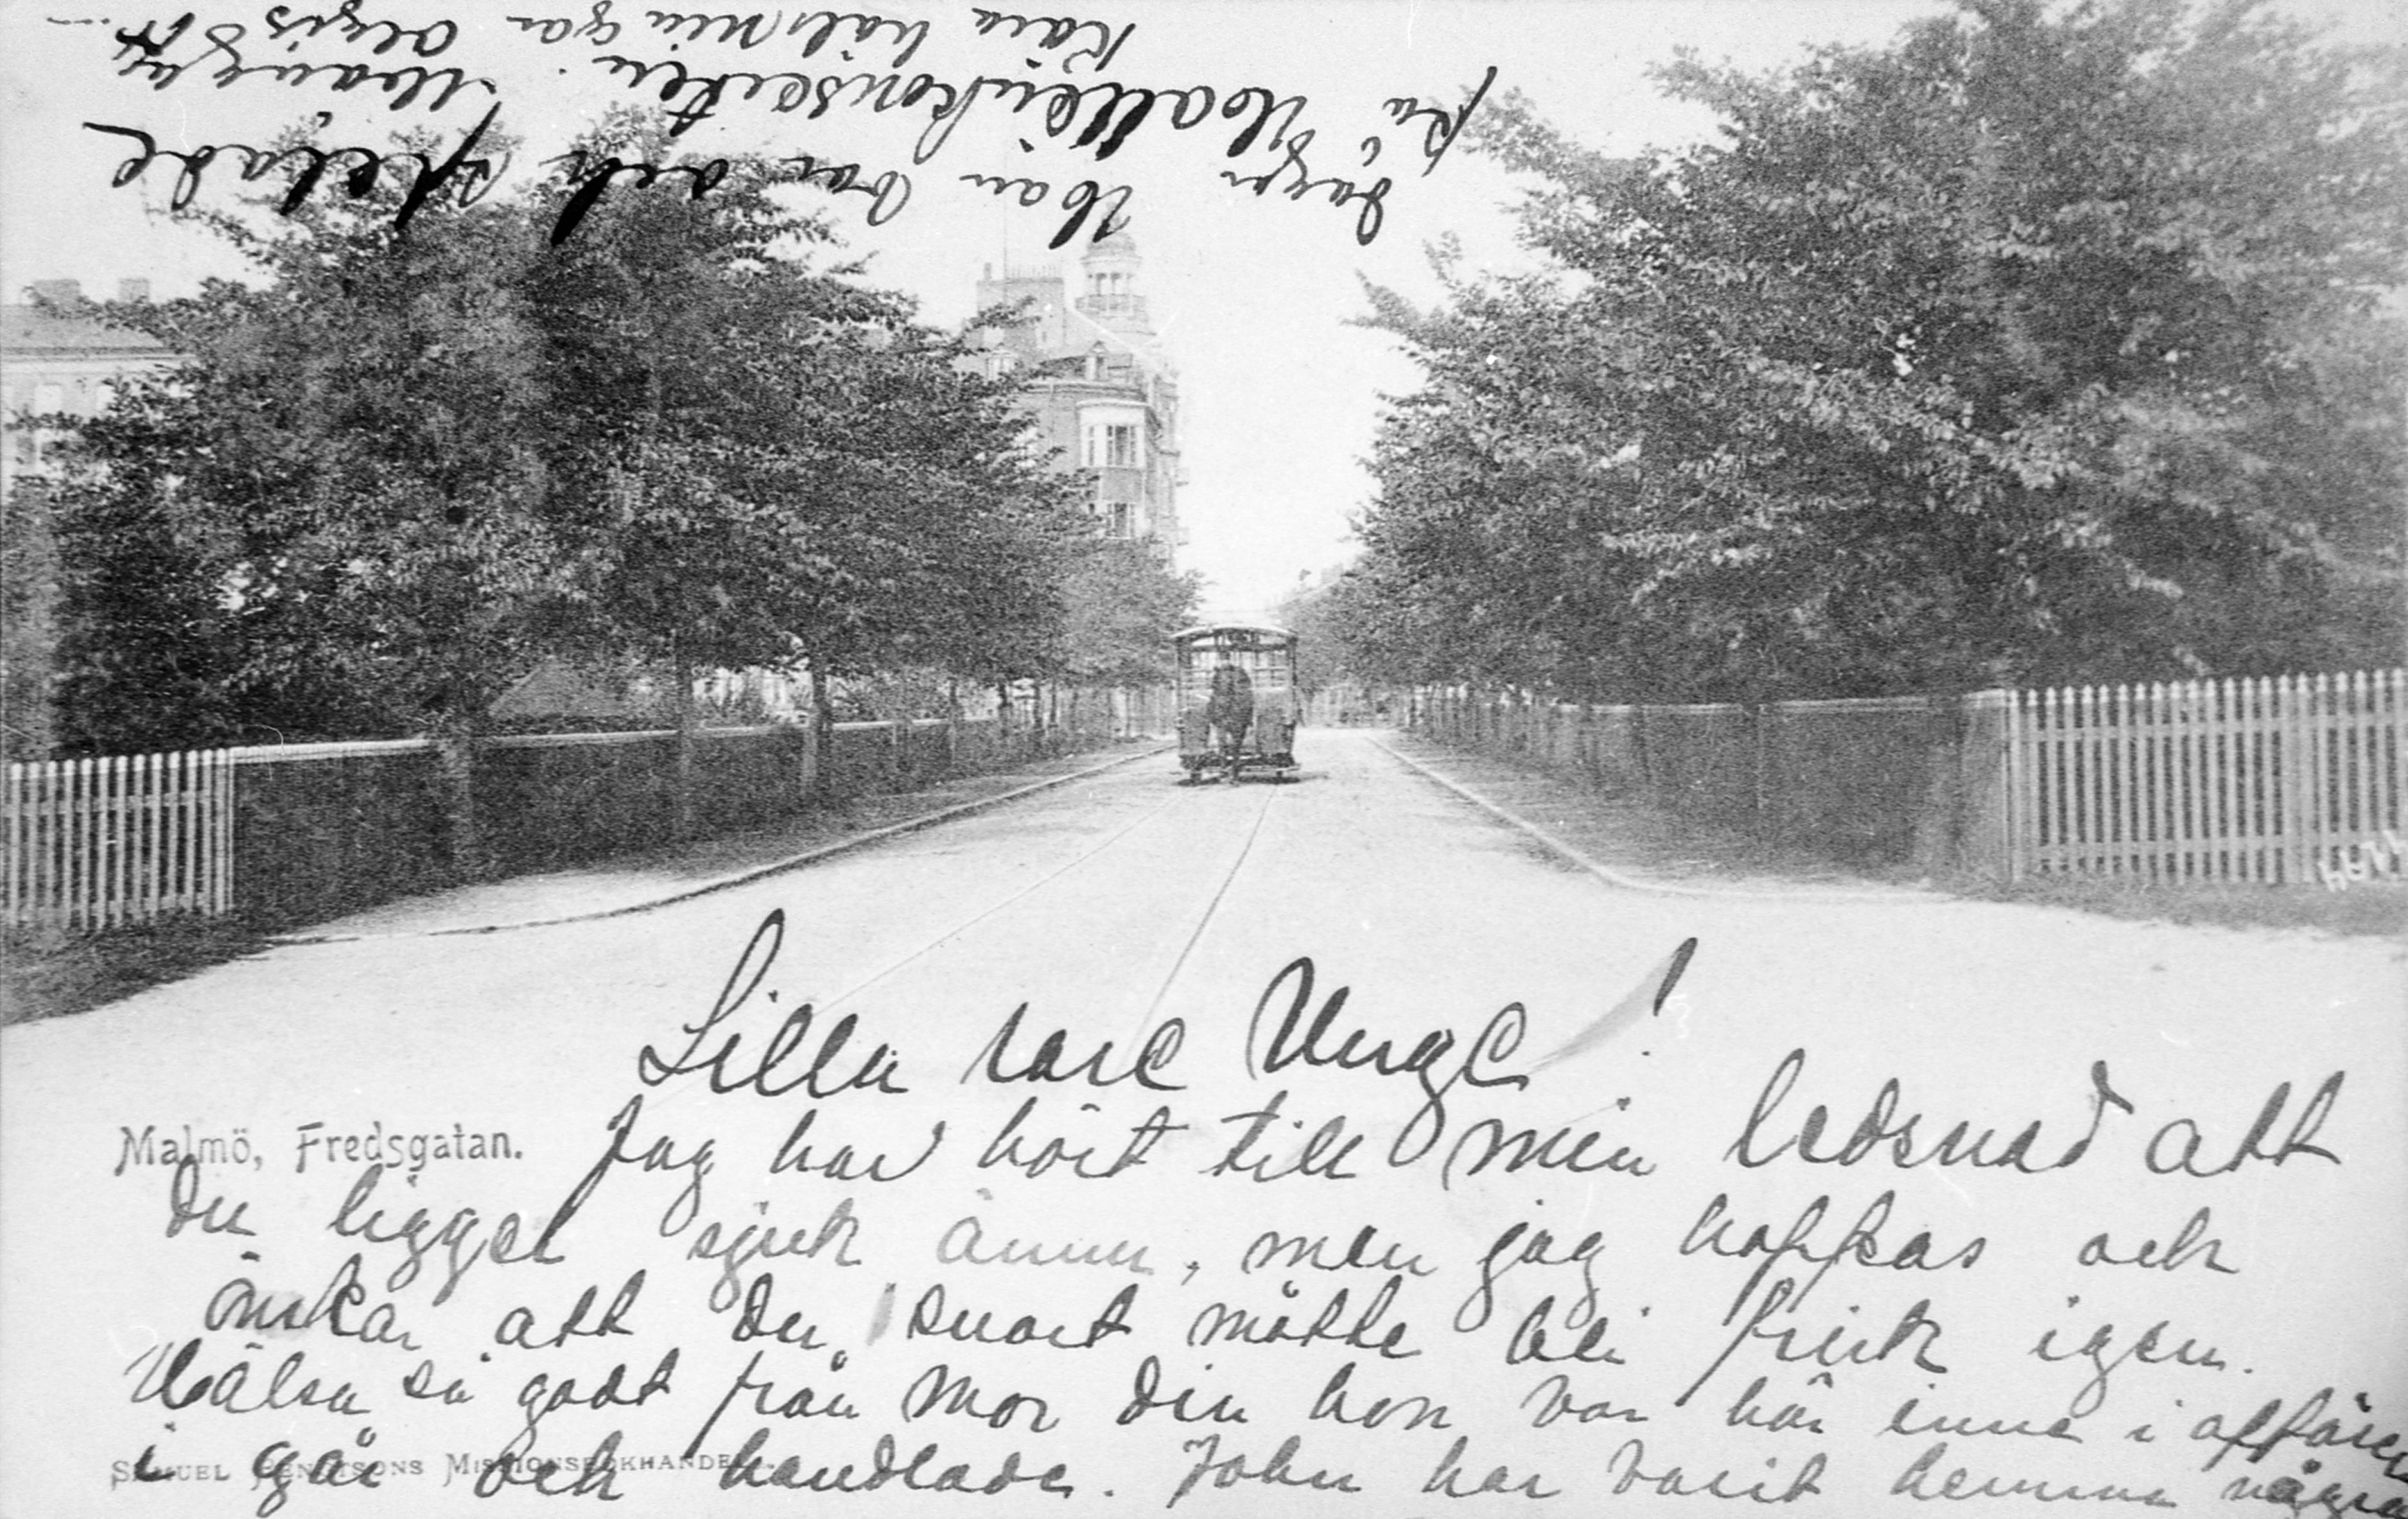 Lilla rare Unge!
Malmö, Fredsgatan.
Jag har hört till min ledsnad att
du ligger sjuk ännu, men jag hoppas och
önskar att du snart måtte bli frisk igen.
Hälsa så godt från Mor din hon var här inne i affären
i går och handlade. John har varit hemma några
Samuel Bengtsons Missionsbokhandel.
dagar
på Hallbin konserten.
Han var och spelade
Kära häls